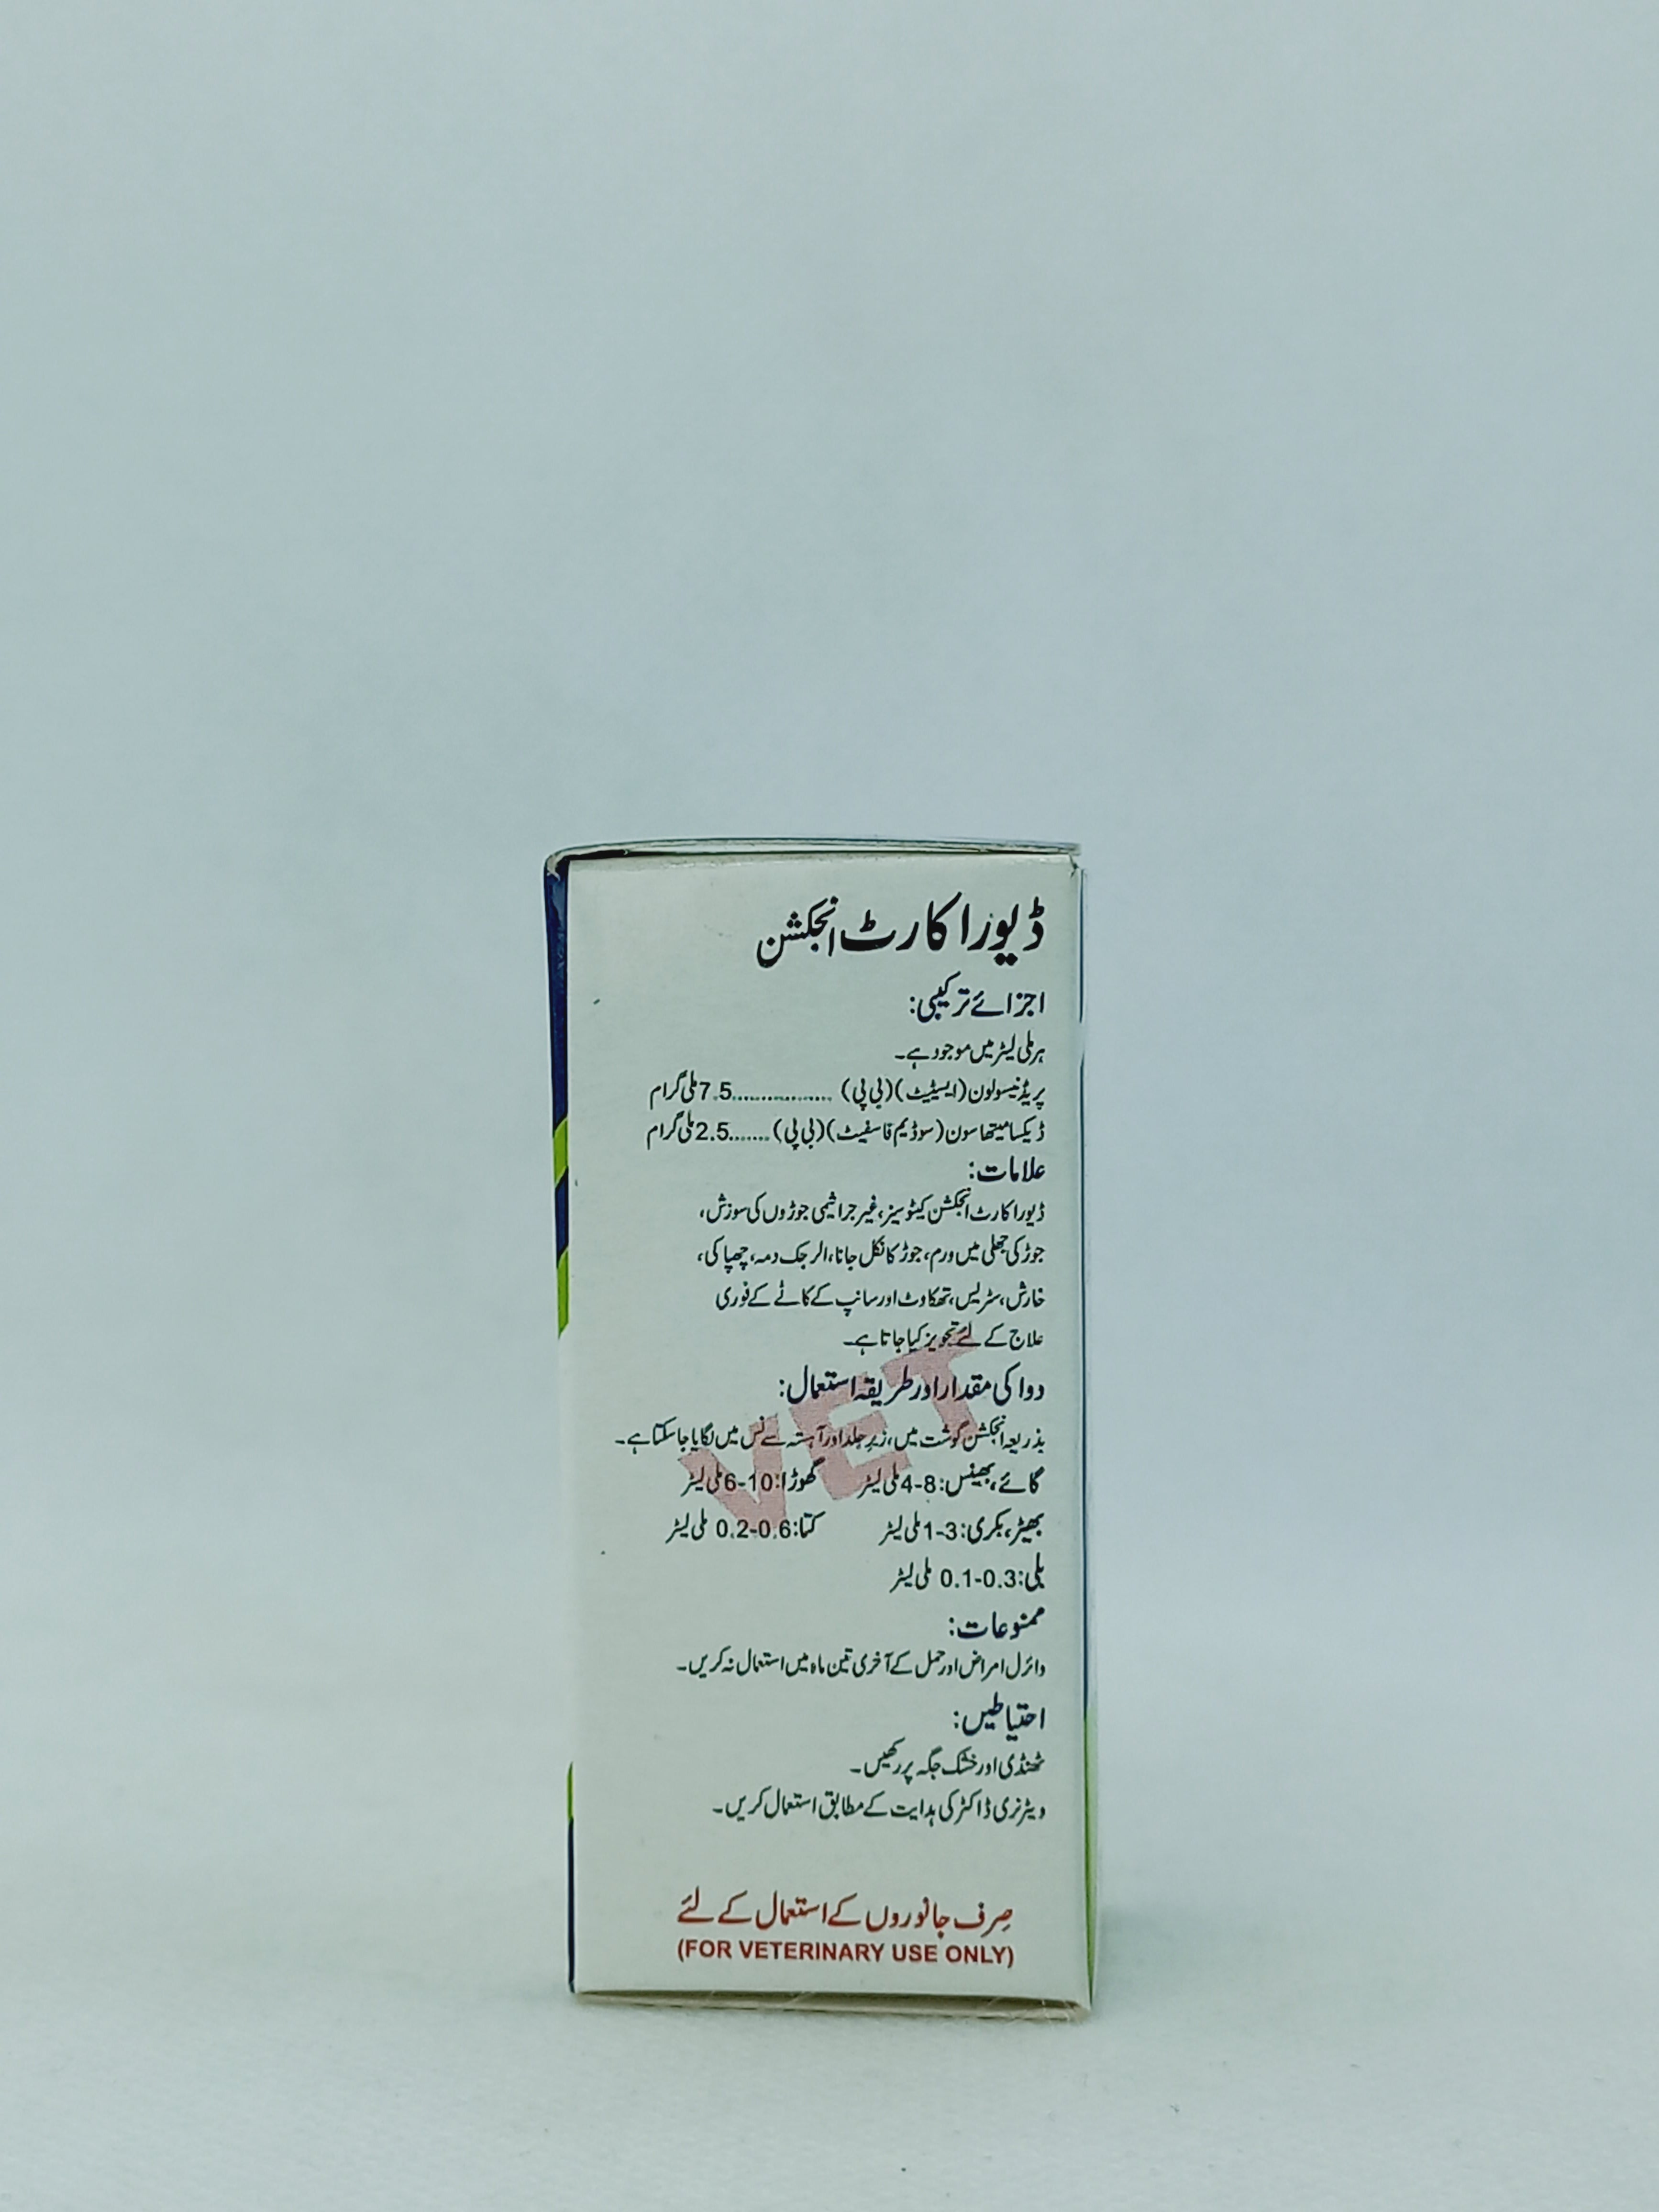 ڈیورا کارٹ انجکشن
اجزائے ترکیبی:
ہر ملی لیٹر میں موجود ہے۔
پریڈنیسولون (ایسٹیٹ) (بی پی) ................7.5 ملی گرام
ڈیکسامیتھاسون (سوڈیم فاسفیٹ) (بی پی) .......2.5 ملی گرام
علامات:
ڈیورا کارٹ انجکشن کیٹوسیز، غیر جراثیمی جوڑوں کی سوزش،
جوڑ کی جھلی میں ورم، جوڑ کا نکل جانا، الرجک دمہ، چھپاکی،
خارش، سٹریس، تھکاوٹ اور سانپ کے کاٹے کے فوری
علاج کے لئے تجویز کیا جاتا ہے۔
دوا کی مقدار اور طریقہ استعمال:
بذریعہ انجکشن گوشت میں، زیر جلد اور آہستہ سے نس میں لگایا جاسکتا ہے۔
گائے، بھینس: 8-4 ملی لیٹر گھوڑا: 10-6 ملی لیٹر
بھیڑ، بکری: 3-1 ملی لیٹر کتا: 0.6-0.2 ملی لیٹر
بلی: 0.3-0.1 ملی لیٹر
VET
ممنوعات:
وائرل امراض اور حمل کے آخری تین ماہ میں استعمال نہ کریں۔
احتیاطیں:
ٹھنڈی اور خشک جگہ پر رکھیں۔
ویٹرنری ڈاکٹر کی ہدایت کے مطابق استعمال کریں۔
صرف جانوروں کے استعمال کے لئے
(FOR VETERINARY USE ONLY)